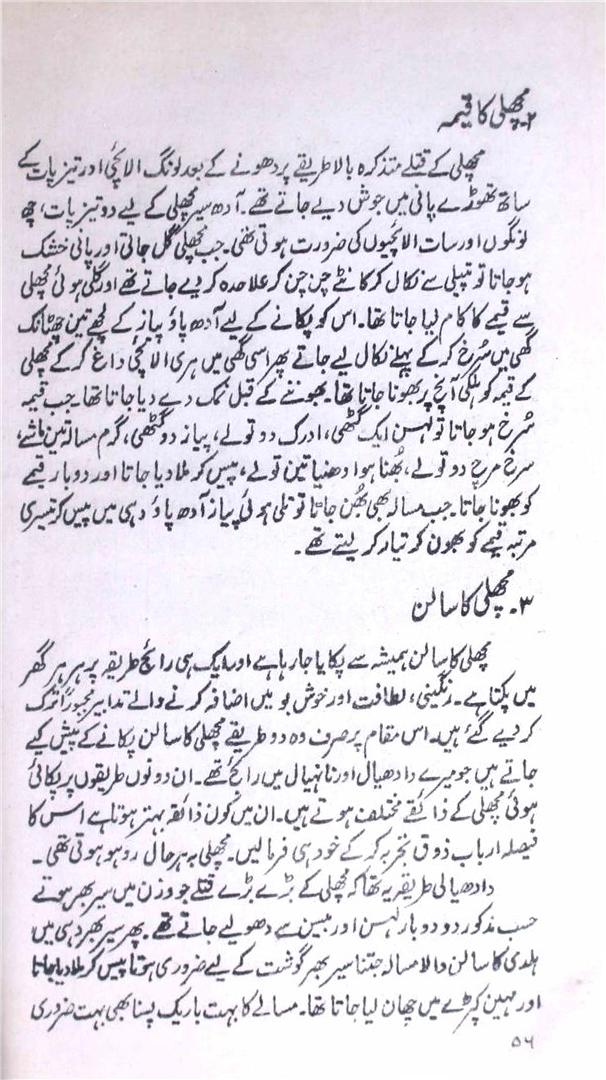 ۲۔ مچھلی کا قیمہ
مچھلی کے قتلے متذکرہ بالا طریقے پر دھونے کے بعد لونگ الائچی اور تیز پات کے
ساتھ تھوڑے پانی میں جوش دیے جاتے تھے۔ آدھ سیر مچھلی کے لیے دو تیز پات، چھ
لونگوں اور سات الائچیوں کی ضرورت ہوتی تھی۔ جب مچھلی گل جاتی اور پانی خشک
ہو جاتا تو پتیلی سے نکال کر کانٹے چن چن کر علاحدہ کر دیے جاتے تھے اور گلی ہوئی مچھلی
سے قیمے کا کام لیا جاتا تھا۔ اس کو پکانے کے لیے آدھ پاؤ پیاز کے لچھے تین چھٹانک
گھی میں سُرخ کر کے پہلے نکال لیے جاتے پھر اسی گھی میں ہری الائچی داغ کر کے مچھلی
کے قیمہ کو ہلکی آنچ پر بھونا جاتا تھا۔ بھوننے کے قبل نمک دے دیا جاتا تھا۔ جب قیمہ
سُرخ ہو جاتا تو لہسن ایک گٹھی، ادرک دو تولے، پیاز دو گٹھی، گرم مسالہ تین ماشے،
سرخ مرچ دو تولے، بھُنا ہوا دھنیا تین تولے، پیس کر ملا دیا جاتا اور دوبار قیمے
کو بھونا جاتا۔ جب مسالہ بھی بھُن جاتا تو تلی ہوئی پیاز آدھ پاؤ دہی میں پیس کر تیسری
مرتبہ قیمے کو بھون کر تیار کر لیتے تھے۔
۳۔ مچھلی کا سالن
مچھلی کا سالن ہمیشہ سے پکایا جا رہا ہے اور ایک ہی رائج طریقہ پر ہر ہر گھر
میں پکتا ہے۔ رنگینی، لطافت اور خوش بو میں اضافہ کرنے والے تدابیر مجبوراً ترک
کر دیے گئے ہیں۔ اس مقام پر صرف وہ دو طریقے مچھلی کا سالن پکانے کے پیش کیے
جاتے ہیں جو میرے دادھیال اور نانہیال میں رائج تھے۔ ان دونوں طریقوں پر پکائی
ہوئی مچھلی کے ذائقے مختلف ہوتے ہیں۔ ان میں کون ذائقہ بہتر ہوتا ہے اس کا
فیصلہ ارباب ذوق تجربہ کر کے خود ہی فرمالیں۔ مچھلی بہ ہر حال روہو ہوتی تھی۔
دادھیالی طریقہ یہ تھا کہ مچھلی کے بڑے بڑے قتلے جو وزن میں سیر بھر ہوتے
حسب مذکور دو دو بار لہسن اور بیسن سے دھو لیے جاتے تھے۔ پھر سیر بھر دہی میں
ہلدی کا سالن والا مسالہ جتنا سیر بھر گوشت کے لیے ضروری ہوتا پیس کر ملا دیا جاتا
اور مہین کپڑے میں چھان لیا جاتا تھا۔ مسالے کا بہت باریک پسنا بھی بہت ضروری
۵۶